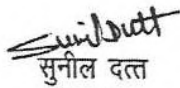 Sunil Dutt
सुनील दत्त